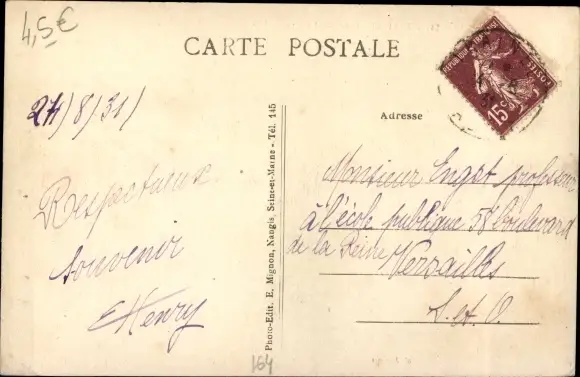 4,5€
CARTE POSTALE
15c
24/8/31/
Adresse
Respectueux
souvenir
EHenry
Photo-Edit. E. Mignon, Nangis, Seine-et-Marne - Tél. 145
Monsieur Engat professeur
à l'école publique 58 boulevard
de la Reine Versailles
S. et O.
164